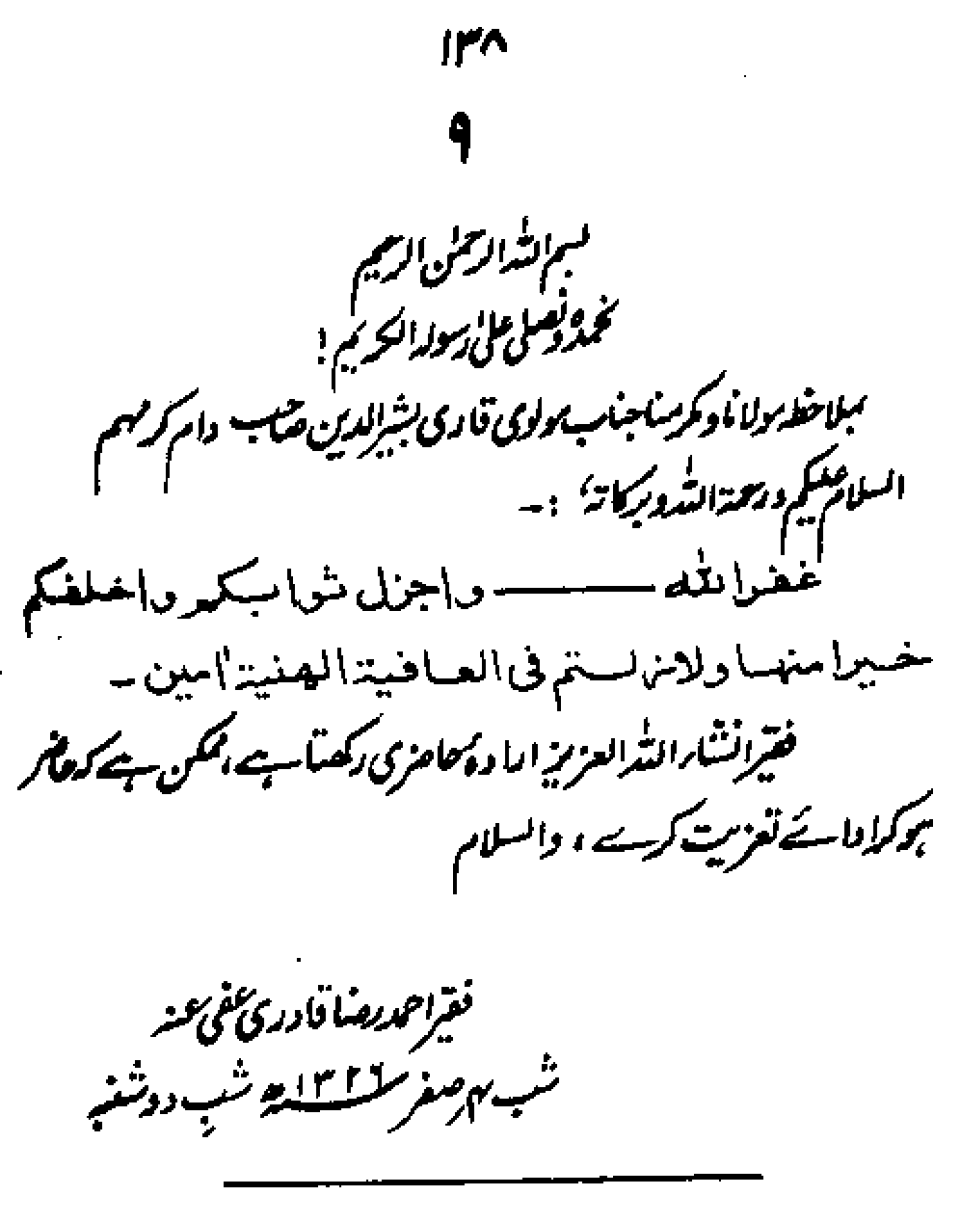 ۱۳۸
۹
بسم اللہ الرحمٰن الرحیم
نحمدہ و نصلی علیٰ رسولہ الکریم !
بملاحظہ مولانا و مکرمنا جناب مولوی قاری بشیر الدین صاحب دام کرمہم
السلام علیکم و رحمۃ اللہ و برکاتہٗ :۔
غفر اللہ ——— واجزل ثوابکم واخلفکم
خیرا منہا ولا زلتم فی العافیۃ الھنیۃ اٰمین ۔
فقیر انشاء اللہ العزیز ارادۂ حاضری رکھتا ہے، ممکن ہے کہ حاضر
ہو کر ادائے تعزیت کرے ، والسلام
فقیر احمد رضا قادری عفی عنہ
شب ۴ صفر ۱۳۲۶ھ شبِ دوشنبہ